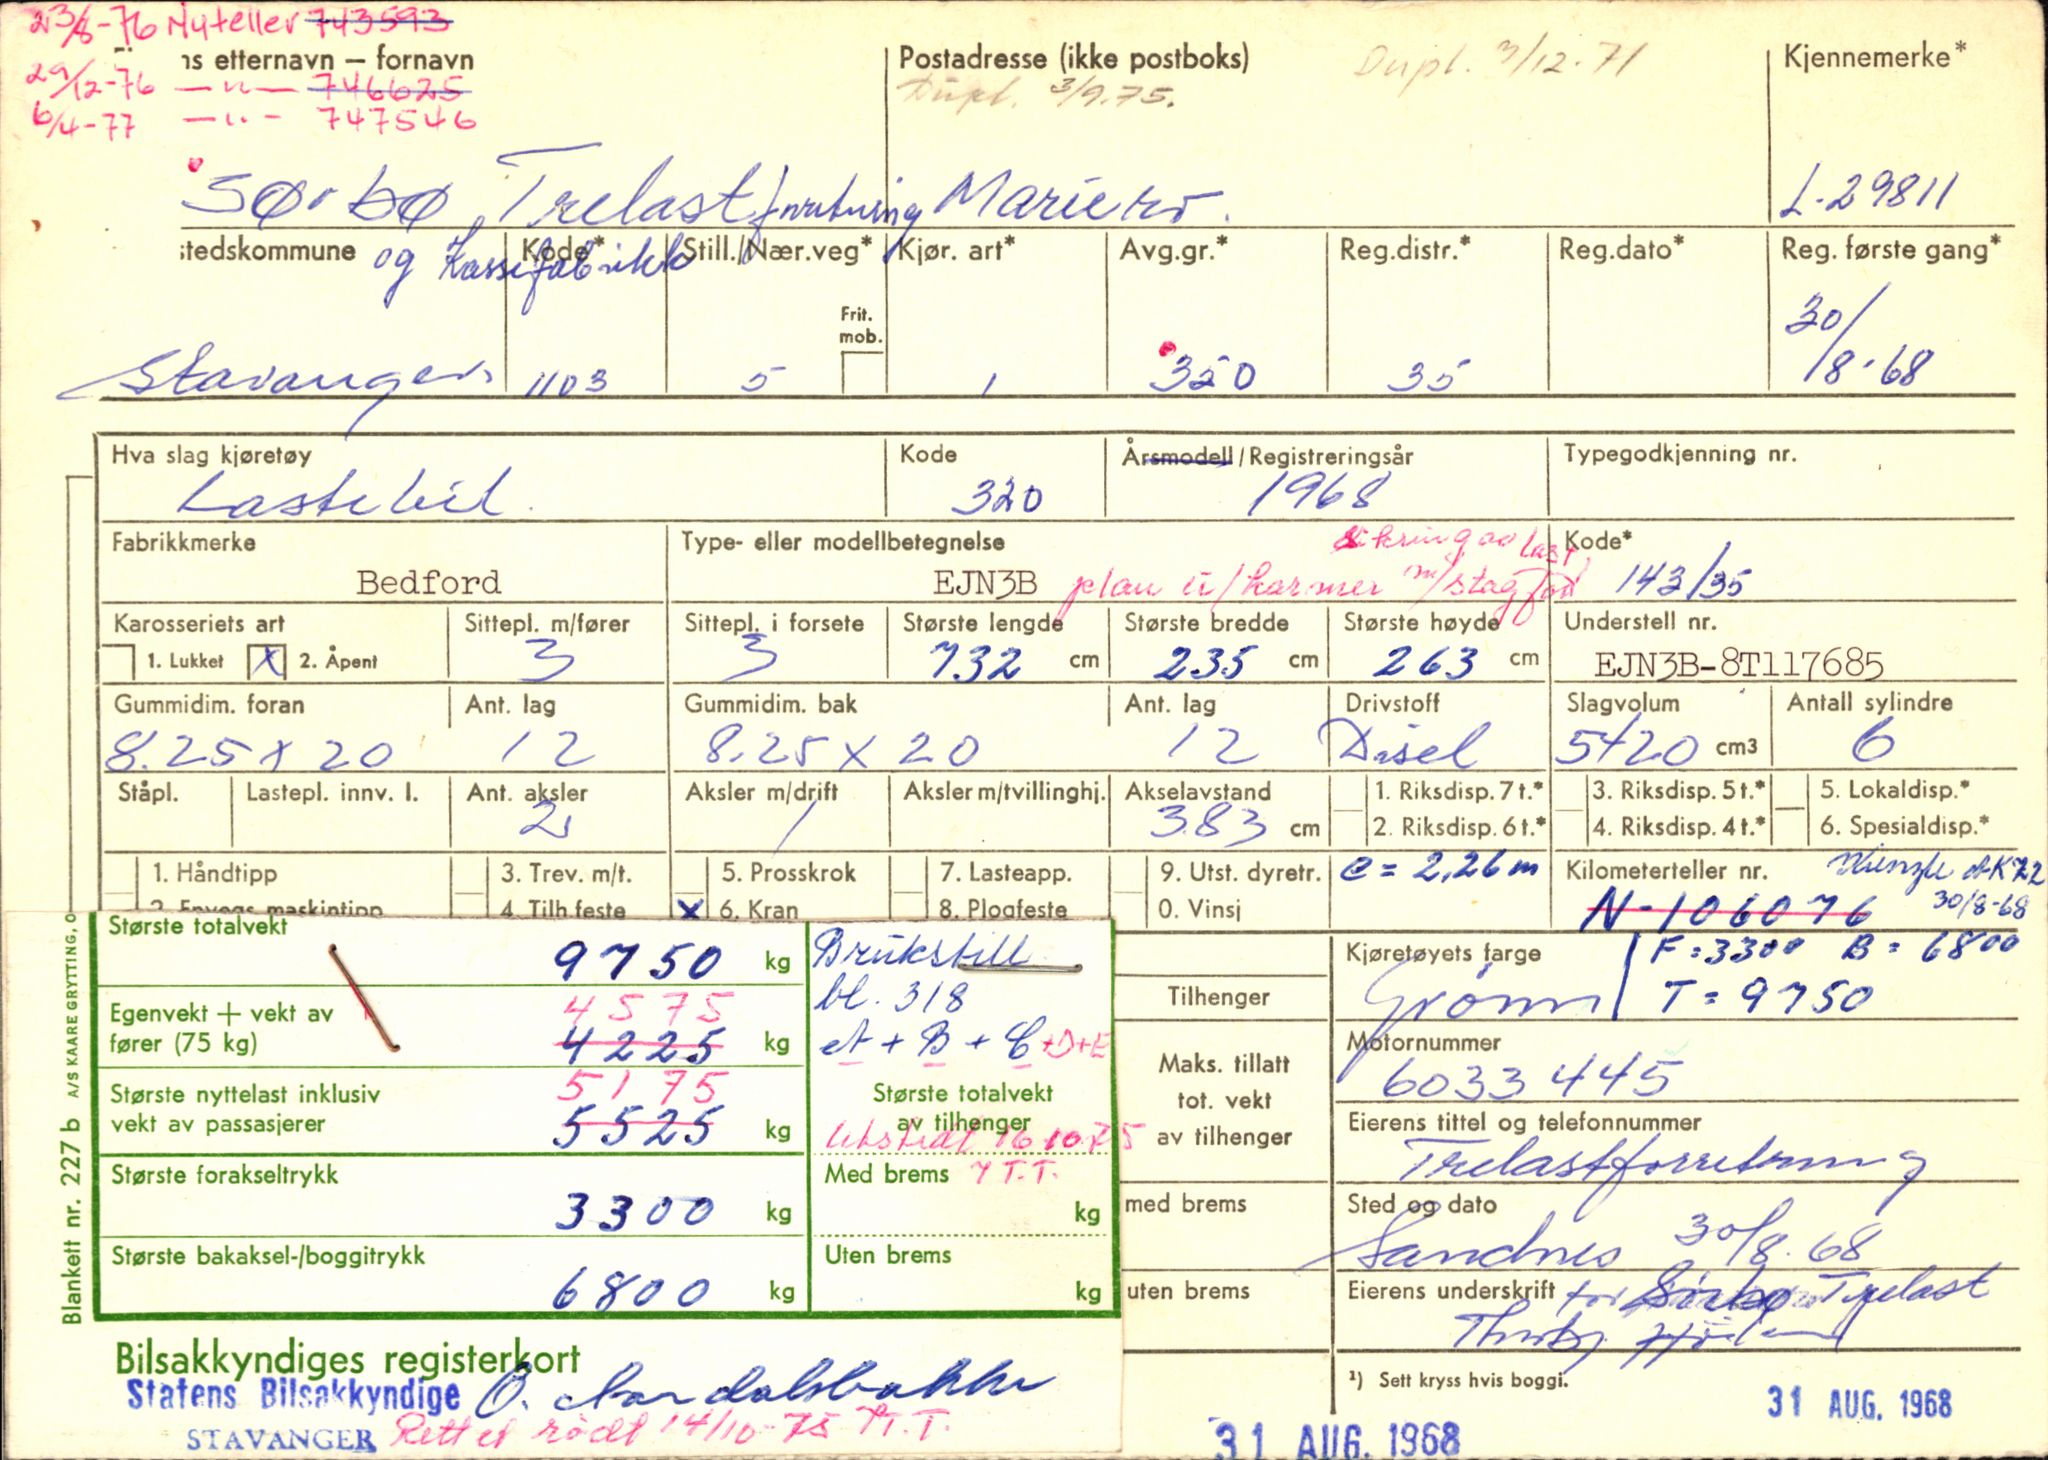 23/8-76 Nyteller 743593
ns etternavn – fornavn
29/12-76 — " — 746625
6/4-77 — " — 747546
Postadresse (ikke postboks)
Dupl. 3/12-71
Dupl. 3/9.75.
Kjennemerke*
Sørbø Trelastforretning Mariero.
L-29811
og Kassefabrikk
stedskommune Kode* Still./Nær.veg* Kjør. art* Avg.gr.* Reg.distr.* Reg.dato* Reg. første gang*
Frit. mob.
Stavanger 1103 5 1 320 35 30/8-68
Hva slag kjøretøy Kode Årsmodell/Registreringsår Typegodkjenning nr.
Lastebil 320 1968
Fabrikkmerke Type- eller modellbetegnelse Kode*
sikring av last
Bedford EJN3B plan u/karmer m/stag for 143/35
Karosseriets art Sittepl. m/fører Sittepl. i forsete Største lengde Største bredde Største høyde Understell nr.
1. Lukket X 2. Åpent 3 3 732 cm 235 cm 263 cm EJN3B-8T117685
Gummidim. foran Ant. lag Gummidim. bak Ant. lag Drivstoff Slagvolum Antall sylindre
8.25 x 20 12 8.25 x 20 12 Disel 5420 cm3 6
Ståpl. Lastepl. innv. l. Ant. aksler Aksler m/drift Aksler m/tvillinghj. Akselavstand 1. Riksdisp. 7 t.* 3. Riksdisp. 5 t.* 5. Lokaldisp.*
2 1 383 cm 2. Riksdisp. 6 t.* 4. Riksdisp. 4 t.* 6. Spesialdisp.*
1. Håndtipp 3. Trev. m/t. 5. Prosskrok 7. Lasteapp. 9. Utst. dyretr. e = 2,26 m Kilometerteller nr. Kienzle AK 72
2. Envegs maskintipp 4. Tilh.feste X 6. Kran 8. Plogfeste 0. Vinsj N-106076 30/8-68
Største totalvekt 9750 kg
Brukstill
bl. 318
A + B + C + D + E
Egenvekt + vekt av
fører (75 kg)
4575
4225 kg
Største nyttelast inklusiv
vekt av passasjerer
5175
5525 kg
Største totalvekt
av tilhenger
16.10.75
Største forakseltrykk 3300 kg
Med brems T.T.
kg
Største bakaksel-/boggitrykk 6800 kg
Uten brems
kg
Tilhenger
Maks. tillatt
tot. vekt
av tilhenger
med brems
uten brems
Kjøretøyets farge F = 3300 B = 6800
Grønn T = 9750
Motornummer
6033445
Eierens tittel og telefonnummer
Trelastforretning
Sted og dato
Sandnes 30/8.68
Eierens underskrift for Sørbø Trelast
¹) Sett kryss hvis boggi.
Blankett nr. 227 b A/S KAARE GRYTTING, O
Bilsakkyndiges registerkort
Statens Bilsakkyndige
STAVANGER
Rettet rødt 14/10-75 T.T.
31 AUG. 1968
31 AUG. 1968